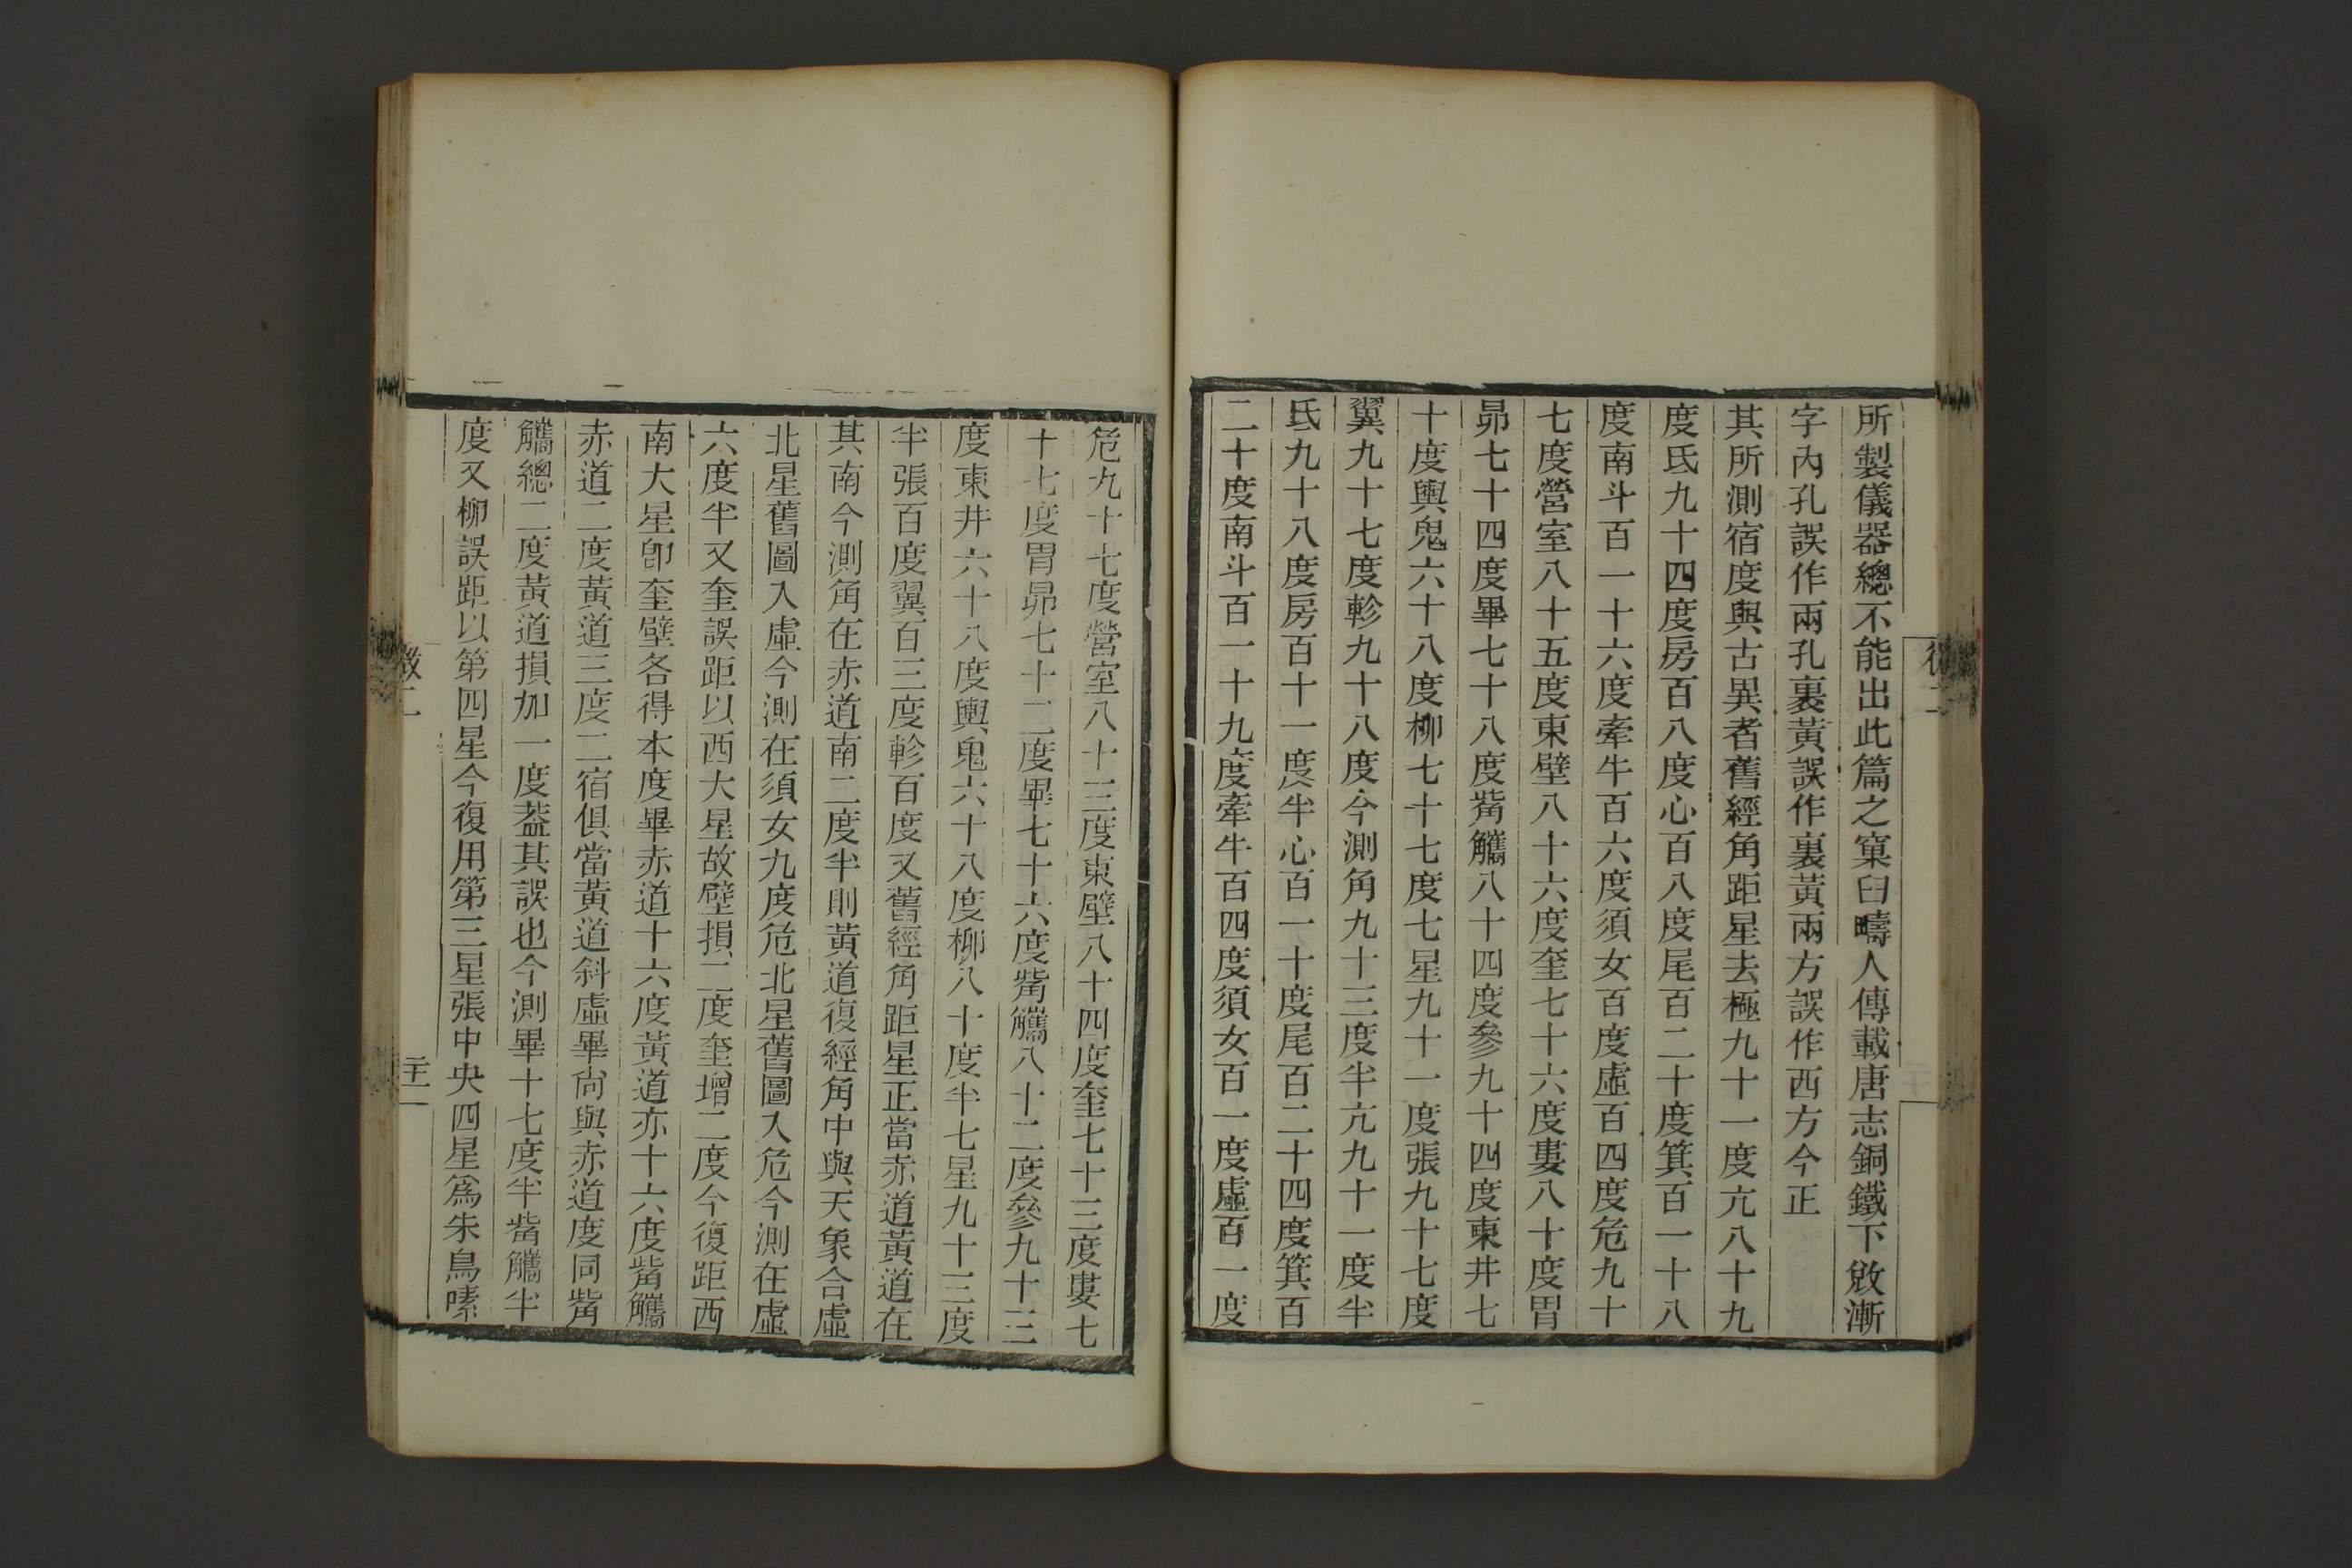 所製儀器總不能出此篇之窠臼疇人傳載唐志銅鐵下敚漸
字內孔誤作兩孔裏黃誤作裏黃兩方誤作西方今正
其所測宿度與古異者舊經角距星去極九十一度亢八十九
度氐九十四度房百八度心百八度尾百二十度箕百一十八
度南斗百一十六度牽牛百六度須女百度虛百四度危九十
七度營室八十五度東壁八十六度奎七十六度婁八十度胃
昴七十四度畢七十八度觜觿八十四度參九十四度東井七
十度輿鬼六十八度柳七十七度七星九十一度張九十七度
翼九十七度軫九十八度今測角九十三度半亢九十一度半
氐九十八度房百十一度半心百一十度尾百二十四度箕百
二十度南斗百一十九度牽牛百四度須女百一度虛百一度
危九十七度營室八十三度東壁八十四度奎七十三度婁七
十七度胃昴七十二度畢七十六度觜觿八十二度參九十三
度東井六十八度輿鬼六十八度柳八十度半七星九十三度
半張百度翼百三度軫百度又舊經角距星正當赤道黃道在
其南今測角在赤道南二度半則黃道復經角中與天象合虛
北星舊圖入虛今測在須女九度危北星舊圖入危今測在虛
六度半又奎誤距以西大星故壁損二度奎增二度今復距西
南大星卽奎壁各得本度畢赤道十六度黃道亦十六度觜觿
赤道二度黃道三度二宿俱當黃道斜虛畢尙與赤道度同觜
觿總二度黃道損加一度葢其誤也今測畢十七度半觜觿半
度又柳誤距以第四星今復用第三星張中央四星爲朱鳥嗉
徵二
二十一